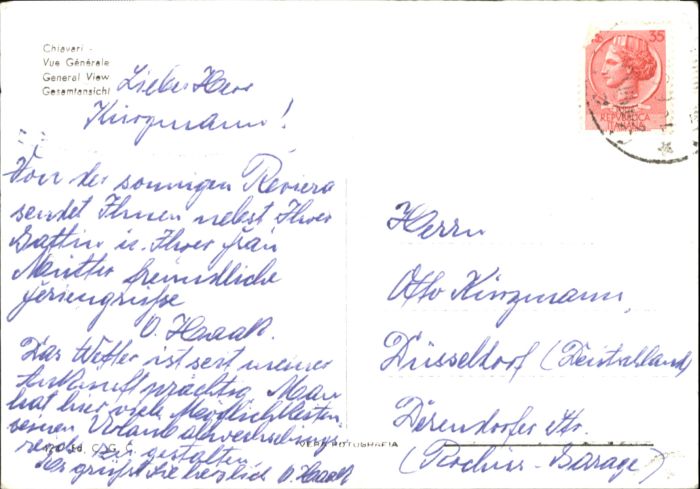 Chiavari -
Vue Générale
General View
Gesamtansicht
Lieber Herr
Kinzmann!
Von der sonnigen Reviera
sendet Ihnen nebst Ihrer
Gattin u. Ihrer Frau
Mutter freundliche
Feriengrüsse
O. Haaak.
Das Wetter ist seit meiner
Ankunft prächtig. Man
hat hier viele Möglichkeiten
seinen Urlaub abwechslungs
reich zu gestalten.
Es grüßt Sie herzlich O. Haaak
Ed.
VERA FOTOGRAFIA
35
REPVBBLICA
ITALIANA
Herrn
Otto Kinzmann,
Düsseldorf (Deutschland)
Derendorfer Str.
(Rochus-Garage)